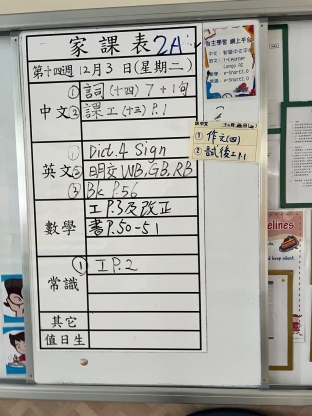 家課表 2A
第十四週 12月 3 日(星期二)
中文
① 詞(十四) 7+1句
② 課工(十三) P.1
英文
① Dict.4 Sign
② 明交 WB, GB, RB
③ Bk P.56
數學
工P.3及改正
書P.50-51
常識
① 工P.2
其它
值日生
自主學習 網上平台
① 作文(四)